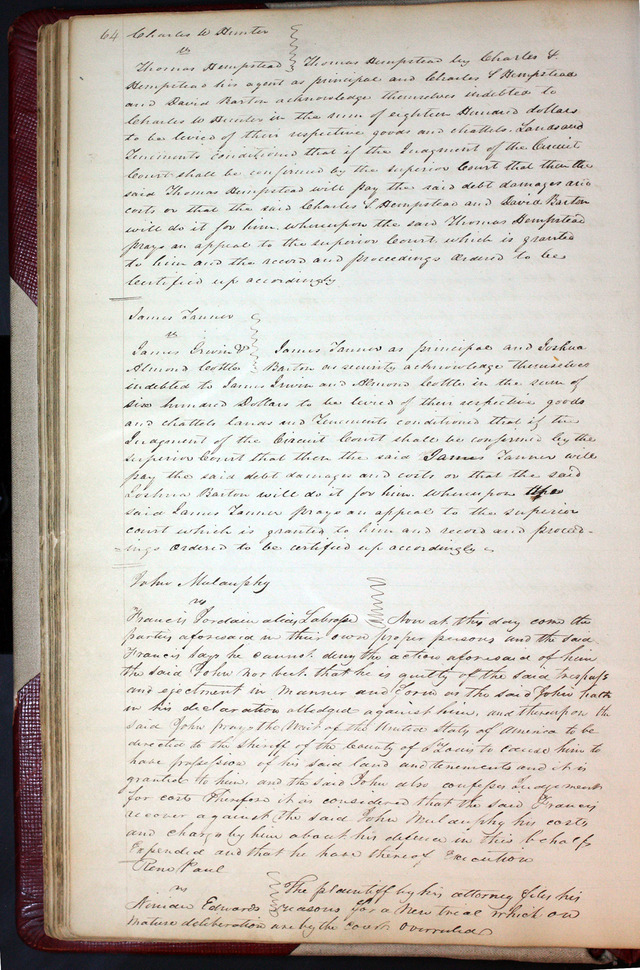 64 Charles W Hunter
vs
Thomas Hempstead Thomas Hempstead by Charles S
Hempstead his agent as principal and Charles S Hempstead
and David Barton acknowledge themselves indebted to
Charles W Hunter in the sum of eighteen Hundred dollars
to be levied of their respective goods and chattels Lands and
Tenements conditioned that if the Judgment of the Circuit
Court shall be confirmed by the superior Court that then the
said Thomas Hempstead will pay the said debt damages and
costs or that the said Charles S Hempstead and David Barton
will do it for him. whereupon the said Thomas Hempstead
prays an appeal to the superior Court which is granted
to him and the record and proceedings ordered to be
Certified up accordingly
James Tanner
vs
James Erwin & James Tanner as principal and Joshua
Almond Cottle Barton as security acknowledge themselves
indebted to James Irwin and Almond Cottle in the sum of
six hundred Dollars to be levied of their respective goods
and chattels lands and Tenements conditioned that if the
Judgment of the Circuit Court shall be confirmed by the
superior Court that then the said James Tanner will
pay the said debt damages and costs or that the said
Joshua Barton will do it for him. whereupon the
said James Tanner prays an appeal to the superior
court which is granted to him and record and proceed-
ings ordered to be certified up accordingly
John Mulanphy
vs
Francis Jordain alias Labrose Now at this day come the
parties aforesaid in their own proper persons and the said
Francis says he cannot deny the action aforesaid of him
the said John nor but that he is guilty of the said trespass
and ejectment in manner and form as the said John hath
in his declaration alledged against him, and thereupon the
said John prays the Writ of the United States of America to be
directed to the sheriff of the County of St Louis to cause him to
have possession of his said land and tenements and it is
granted to him and the said John also confesses Judgement
for costs Therefore it is considered that the said Francis
recover against the said John Mulanphy his costs
and charges by him about his defence in this behalf
Expended and that he have thereof Execution
Rene Paul
vs The plaintiff by his attorney files his
Ninian Edwards reasons for a New trial which on
mature deliberation are by the court overruled